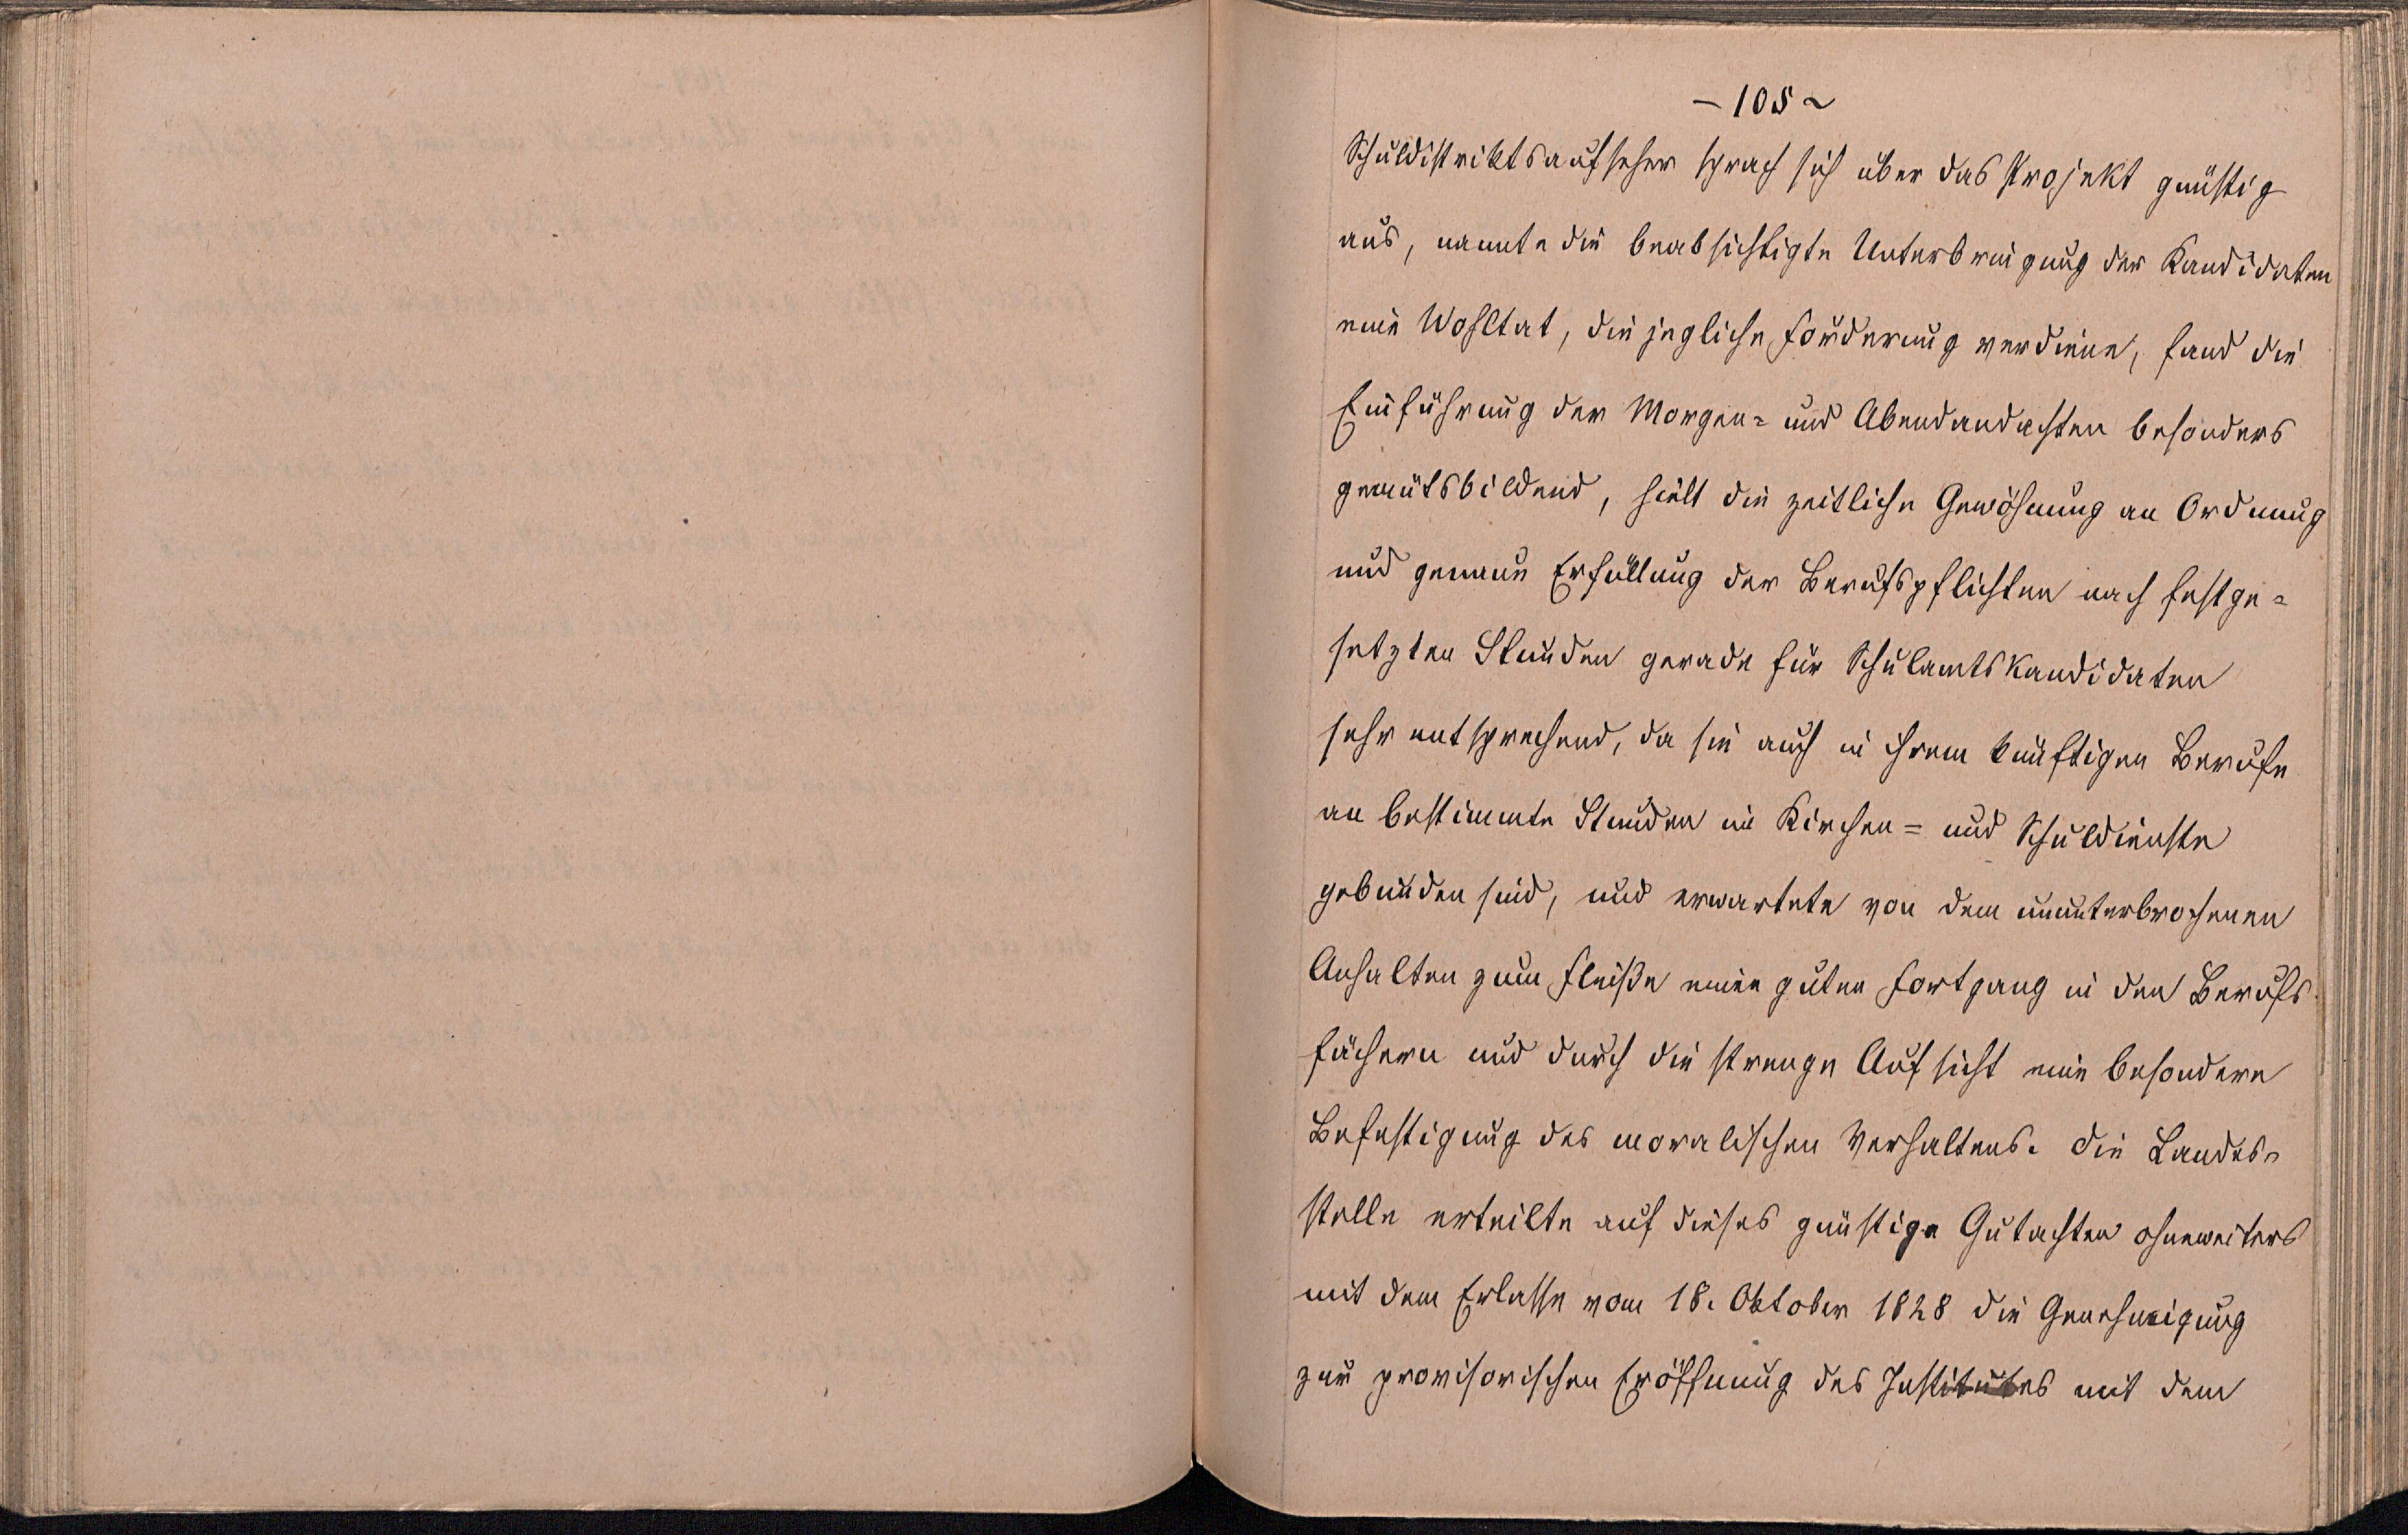 – 105 ~
Schuldistriktsaufseher sprach sich über das Projekt günstig
aus, nannte die beabsichtigte Unterbringung der Kandidaten
eine Wohltat, die jegliche Förderung verdiene, fand die
Einführung der Morgen= und Abendandachten besonders
gemütsbildend, hielt die zeitliche Gewöhnung an Ordnung
und genaue Erfüllung der Berufspflichten nach festge=
setzten Stunden gerade für Schulamtskandidaten
sehr entsprechend, da sie auch in ihrem künftigen Berufe
an bestimmte Stunden im Kirchen= und Schuldienste
gebunden sind, und erwartete von dem ununterbrochenen
Anhalten zum Fleiße einen guten Fortgang in den Berufs
fächern und durch die strenge Aufsicht eine besondere
Befestigung des moralischen Verhaltens. Die Landes=
stelle erteilte auf dieses günstige Gutachten ohneweiters
mit dem Erlasse vom 18. Oktober 1828 die Genehmigung
zur provisorischen Eröffnung des Institutes mit dem